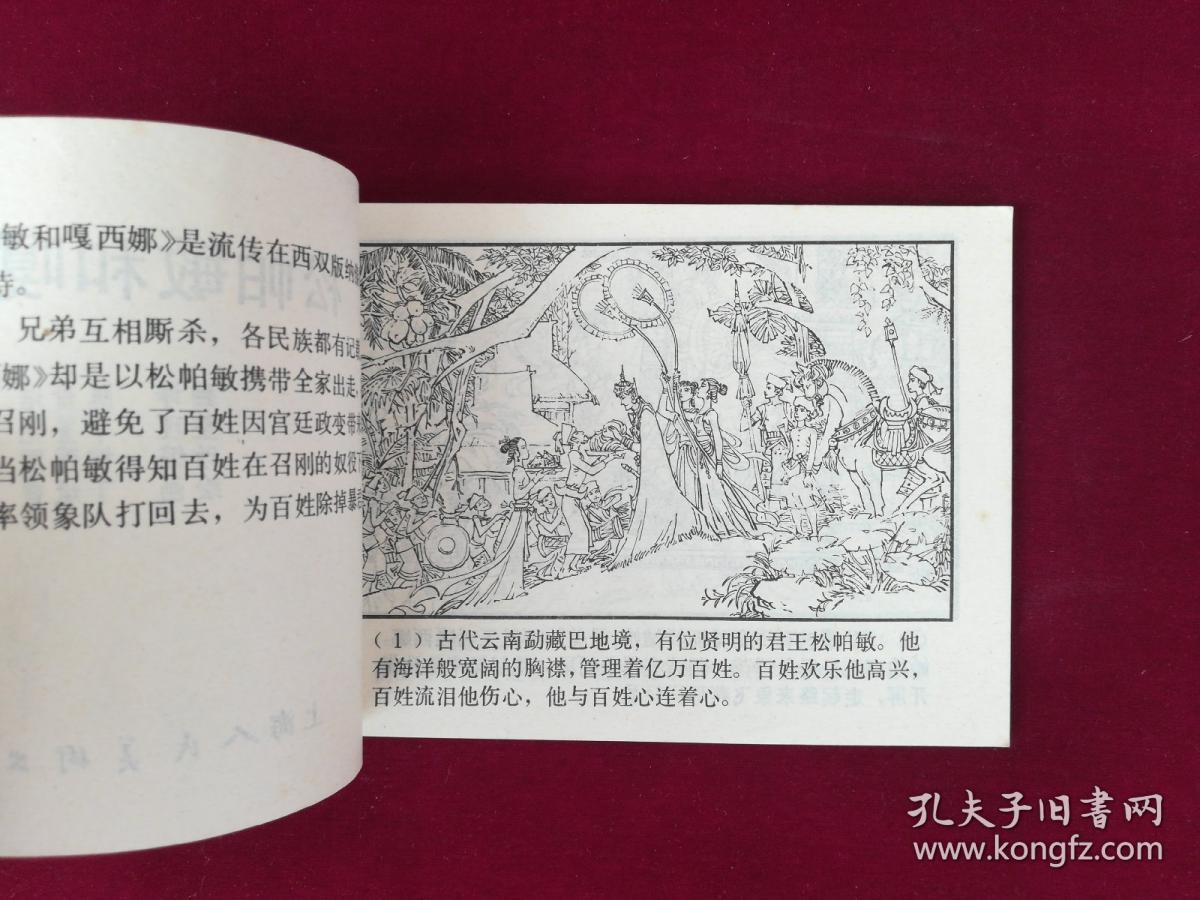 敏和嘎西娜》是流传在西双版纳
诗。
兄弟互相厮杀，各民族都有记
娜》却是以松帕敏携带全家出走
召刚，避免了百姓因宫廷政变带
当松帕敏得知百姓在召刚的奴役
率领象队打回去，为百姓除掉暴
（1）古代云南勐藏巴地境，有位贤明的君王松帕敏。他
有海洋般宽阔的胸襟，管理着亿万百姓。百姓欢乐他高兴，
百姓流泪他伤心，他与百姓心连着心。
孔夫子旧书网
www.kongfz.com